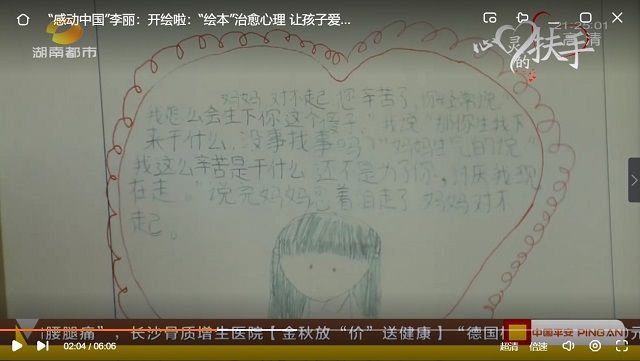 “感动中国”李丽：开绘啦：“绘本”治愈心理 让孩子爱...
湖南都市
21:25:01
高清
心灵的扶手
妈妈,对不起,您辛苦了,你经常说“
我怎么会生下你这个傻子”我说“那你生我下
来干什么,没事找事吗?”妈妈生气的说“
我这么辛苦是干什么,还不是为了你,讨厌我现
在走。”说完妈妈忍着泪走了 妈妈对不
起。
腰腿痛”，长沙骨质增生医院【金秋放“价”送健康】“德国
中国平安 PING AN
02:04 / 06:06
超清 倍速